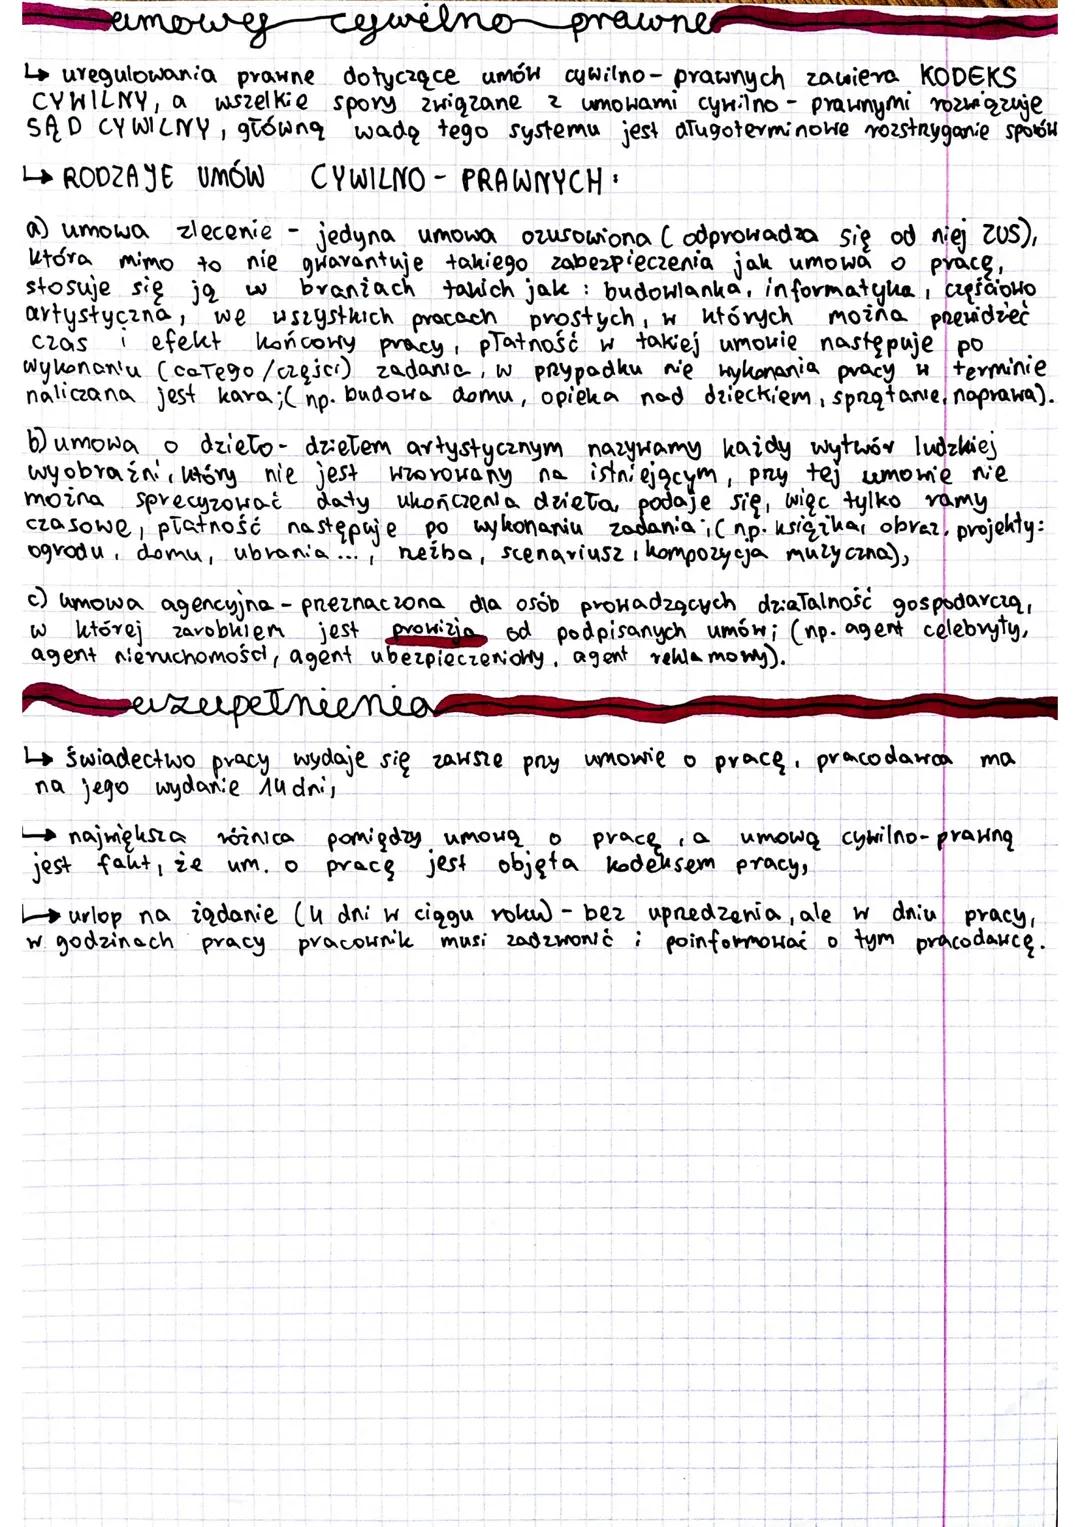 umowy cywilno prawne
↳ uregulowania prawne dotyczące umów cywilno-prawnych zawiera KODEKS
CYWILNY, a wszelkie spory związane z umowami cywilno-prawnymi rozwiązuje
SĄD CYWILNY, główną wadą tego systemu jest długoterminowe rozstryganie sporów
↳ RODZAJE UMÓW CYWILNO-PRAWNYCH:
a) umowa zlecenie - jedyna umowa ozusowiona (odprowadza się od niej ZUS),
która mimo to nie gwarantuje takiego zabezpieczenia jak umowa o pracę,
stosuje się ją w branżach takich jak: budowlanka, informatyka, częściowo
artystyczna, we wszystkich pracach prostych, w których można przewidzieć
czas i efekt końcowy pracy, płatność w takiej umowie następuje po
wykonaniu (całego/części) zadania, w przypadku nie wykonania pracy w terminie
naliczana jest kara;(np. budowa domu, opieka nad dzieckiem, sprzątanie, naprawa).
b) umowa o dzieło - dziełem artystycznym nazywamy każdy wytwór ludzkiej
wyobraźni, który nie jest wzorowany na istniejącym, przy tej umowie nie
można sprecyzować daty ukończenia dzieła, podaje się, więc tylko ramy
czasowe, płatność następuje po wykonaniu zadania;(np. książka, obraz, projekty:
ogrodu, domu, ubrania..., rzeźba, scenariusz, kompozycja muzyczna),
c) umowa agencyjna - przeznaczona dla osób prowadzących działalność gospodarczą,
w której zarobkiem jest prowizja od podpisanych umów; (np. agent celebryty,
agent nieruchomości, agent ubezpieczeniowy, agent reklamowy).
uzupełnienia
↳ świadectwo pracy wydaje się zawsze przy umowie o pracę, pracodawca ma
na jego wydanie 14 dni,
↳ największą różnica pomiędzy umową o pracę, a umową cywilno-prawną
jest fakt, że um. o pracę jest objęta kodeksem pracy,
↳ urlop na żądanie (4 dni w ciągu roku) - bez uprzedzenia, ale w dniu pracy,
w godzinach pracy pracownik musi zadzwonić i poinformować o tym pracodawcę.